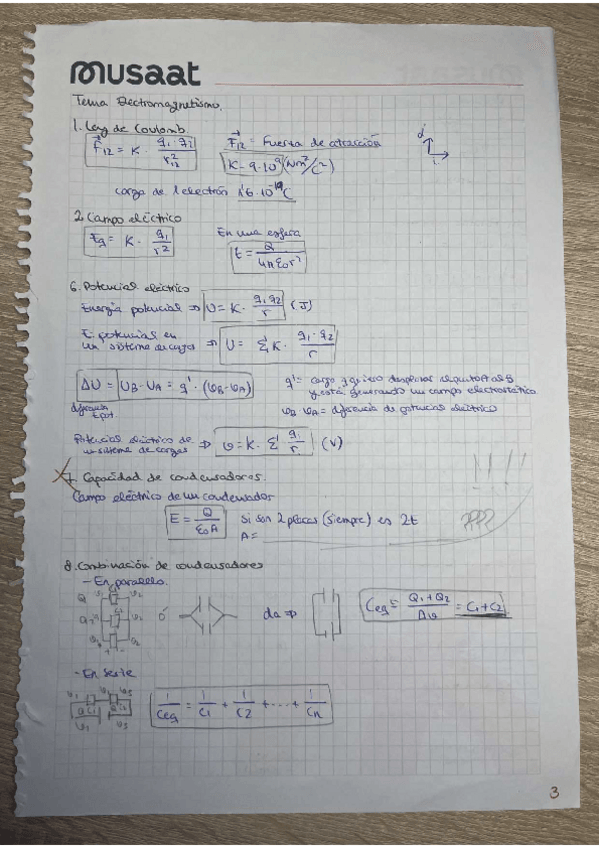 musaat
Tema Electromagnetismo.
1. Ley de Coulomb.
F₁₂ = K · q₁ · q₂ / r₁₂²
F₁₂ = Fuerza de atracción
K = 9·10⁹ (Nm²/C²)
carga de 1 electrón 1'6·10⁻¹⁹ C
2. Campo eléctrico
E = K · q₁ / r²
En una esfera
E = Q / 4πε₀r²
6. Potencial eléctrico
Energía potencial ⇒ U = K · q₁ q₂ / r (J)
E. potencial en
un sistema de cargas ⇒ U = Σ K · q₁ · q₂ / r
ΔU = U_B - U_A = q' · (υ_B - υ_A)
q' = carga que quiero desplazar del punto A al B
y está generando un campo electrostático
diferencia
E pot.
υ_B υ_A = diferencia de potencial eléctrico
Potencial eléctrico de
un sistema de cargas ⇒ υ = K · Σ q₁ / r (V)
7. Capacidad de condensadores.
Campo eléctrico de un condensador
E = Q / ε₀A
Si son 2 placas (siempre) es 2E
A =
????
8. Combinación de condensadores
- En paralelo.
ó
da ⇒
Ceq = Q₁ + Q₂ / Δυ = C₁ + C₂
- En serie
1/Ceq = 1/C₁ + 1/C₂ + ... + 1/Cn
3